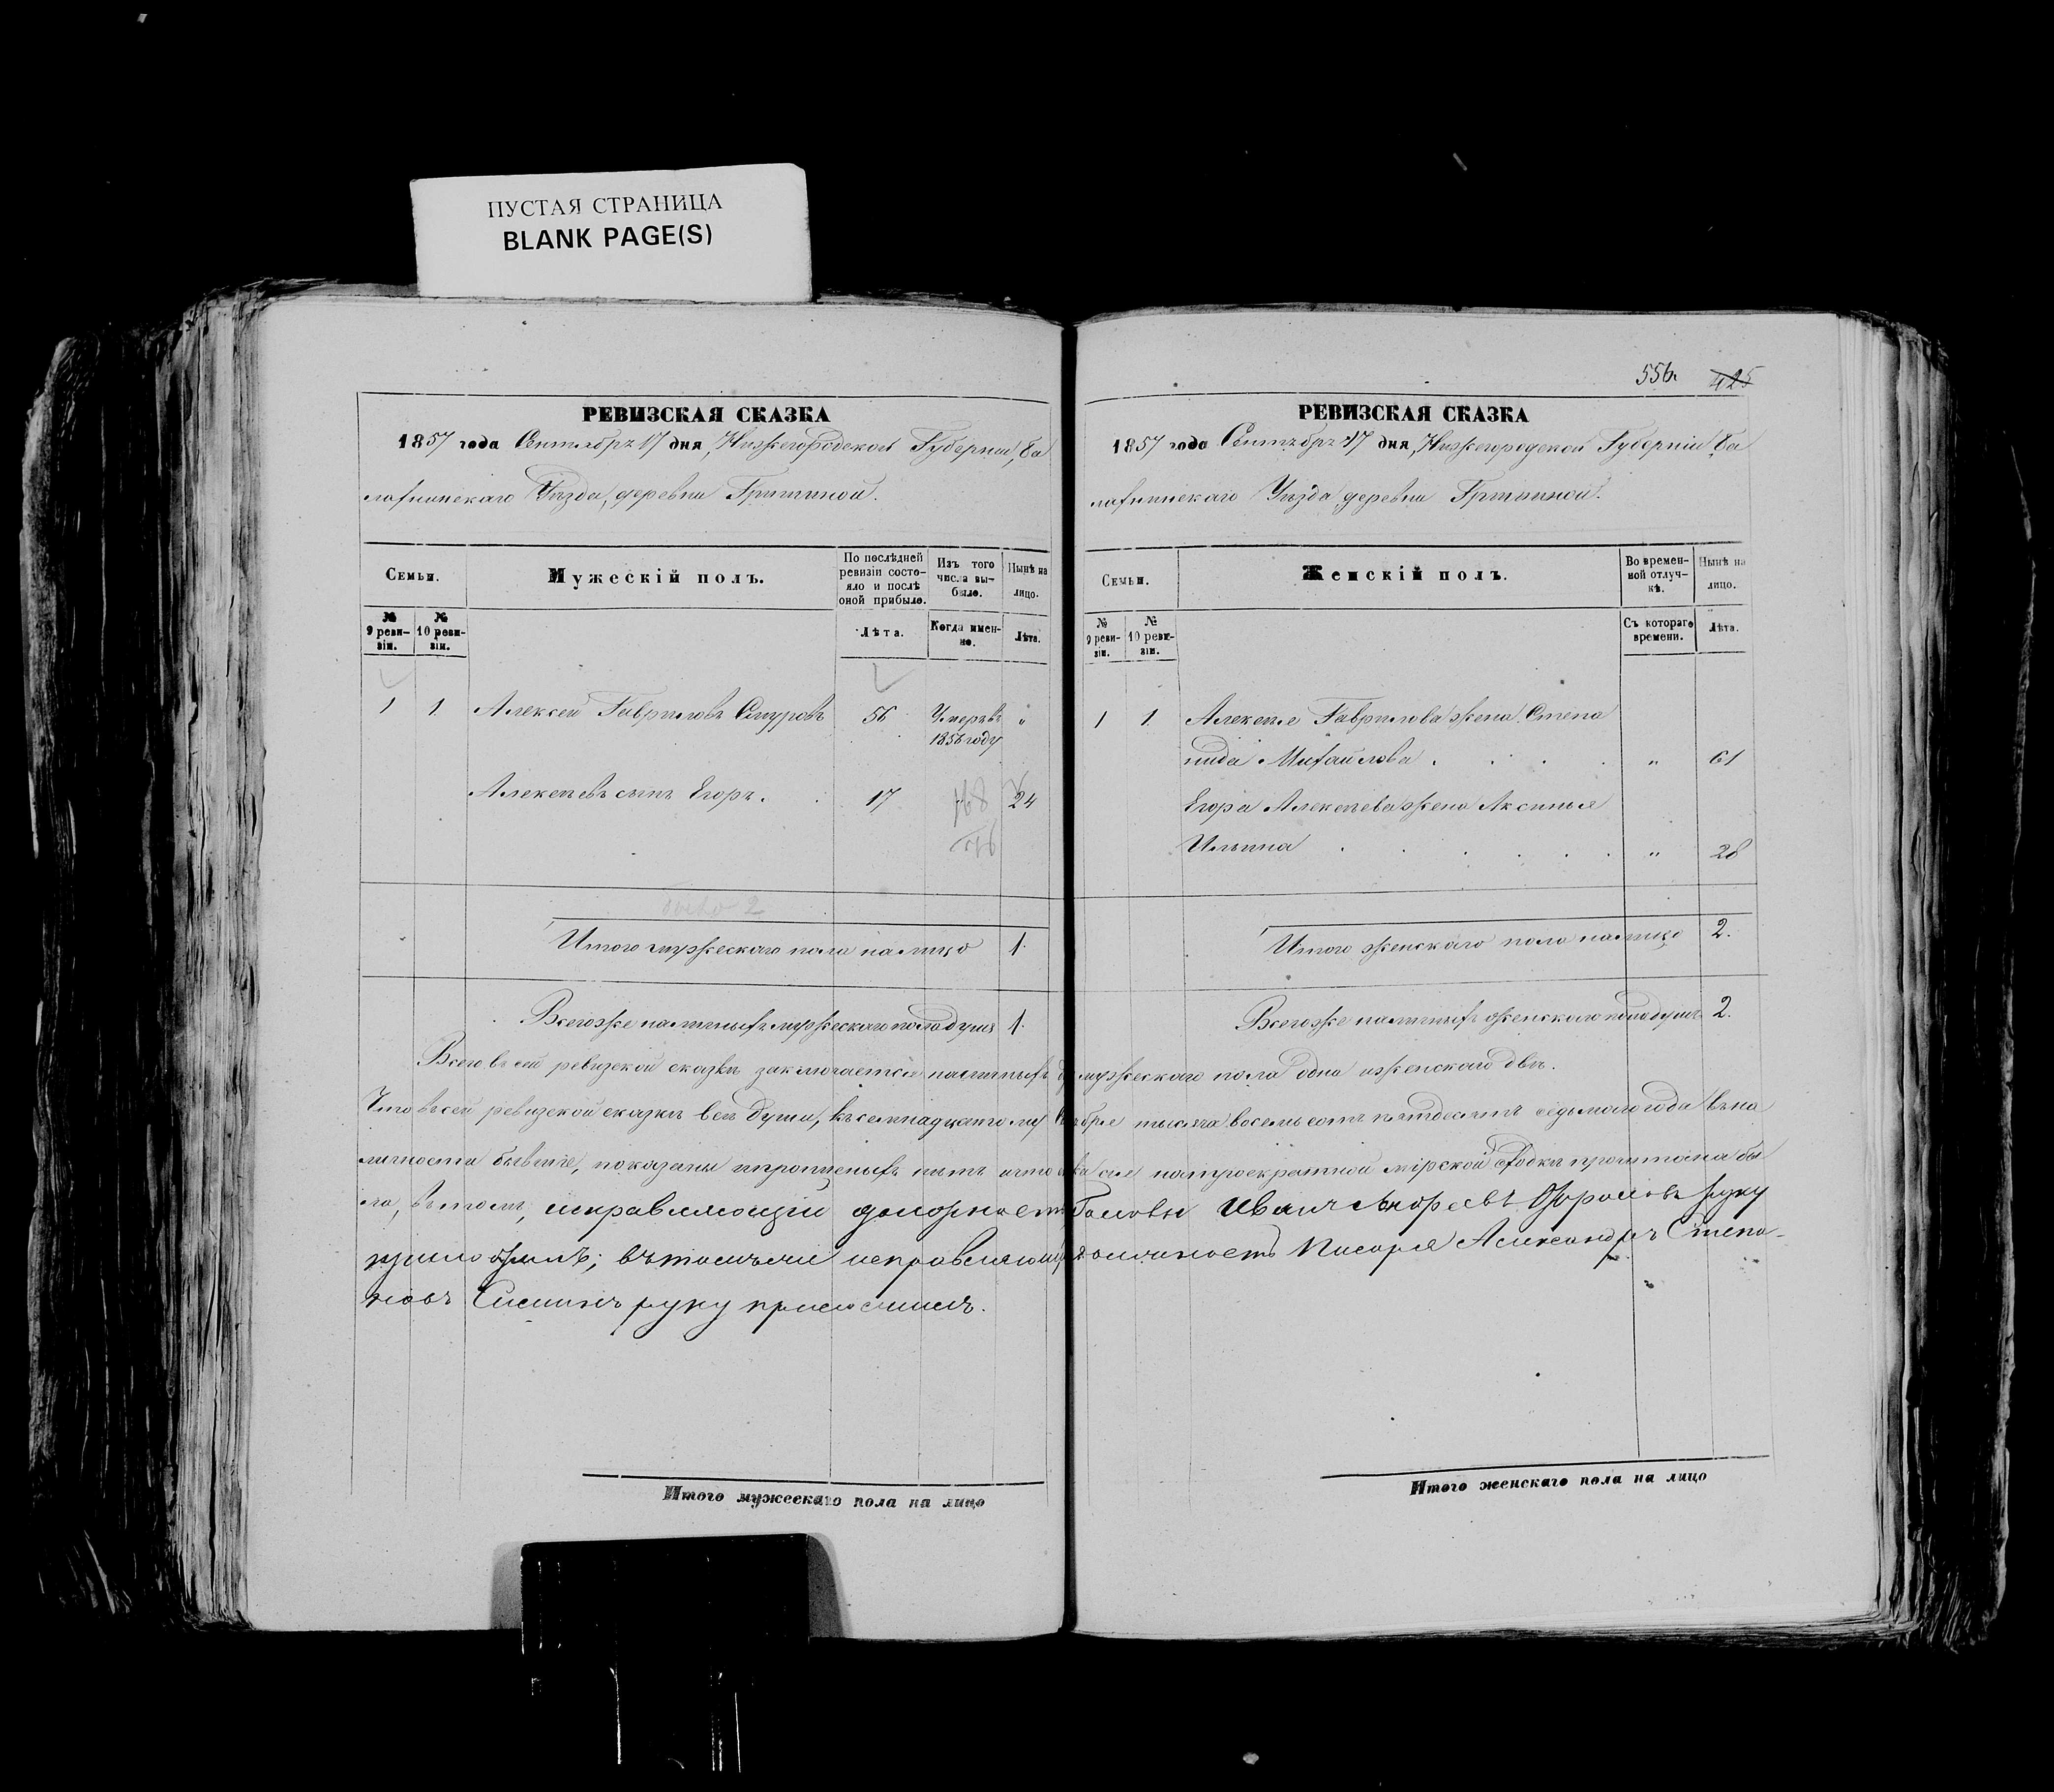 ПУСТАЯ СТРАНИЦА
BLANK PAGE(S)
РЕВИЗСКАЯ СКАЗКА
1857 года Сентября 17 дня, Нижегородской Губерніи, Ба
лахнинскаго Уѣзда, деревни Гришиной.
Семьи.
Мужескій полъ.
По послѣдней
ревизіи состо-
яло и послѣ
оной прибыло.
Изъ того
числа вы-
было.
Нынѣ на
лицо.
№
9 реви-
зіи.
№
10 реви-
зіи.
Лѣта.
Когда имен-
но.
Лѣта.
1 1. Алексей Гавриловъ Смуровъ 56 Умеръ въ "
1856 году
Алексѣевъ сынъ Егоръ. 17 24
всего 2
Итого мужескаго пола на лицо 1.
Всего же наличныхъ мужескаго пола душъ 1.
556
425
РЕВИЗСКАЯ СКАЗКА
1857 года Сентября 17 дня, Нижегородской Губерніи Ба
лахнинскаго Уѣзда деревни Гришиной.
Семьи.
Женскій полъ.
Во времен-
ной отлуч-
кѣ.
Нынѣ на
лицо.
№
9 реви-
зіи.
№
10 реви-
зіи.
Съ котораго
времени.
Лѣта.
1 1. Алексѣя Гаврилова жена Степа
нида Михайлова . . . . " 61
Егора Алексѣева жена Аксинья
Ильина . . . . . . " 28
Итого женскаго пола на лицо 2.
Всего же наличныхъ женскаго пола душъ 2.
Всего въ сей ревизской сказкѣ заключается наличныхъ мужескаго пола одна и женскаго двѣ.
Что въ сей ревизской сказкѣ всѣ души, къ семнадцатому тысяча восемь сотъ пятьдесятъ седьмого года въ на
личности бывшіе, показаны и пропущеныхъ нѣтъ и что сія на троекратной мірской сходкѣ прочитана бы
ла, въ томъ, исправляющій должность Головы Иванъ Андреевъ руку
приложилъ; въ томъ числѣ исправляющій должность Писаря Александръ Степа-
новъ руку приложилъ.
Итого мужескаго пола на лицо
Итого женскаго пола на лицо